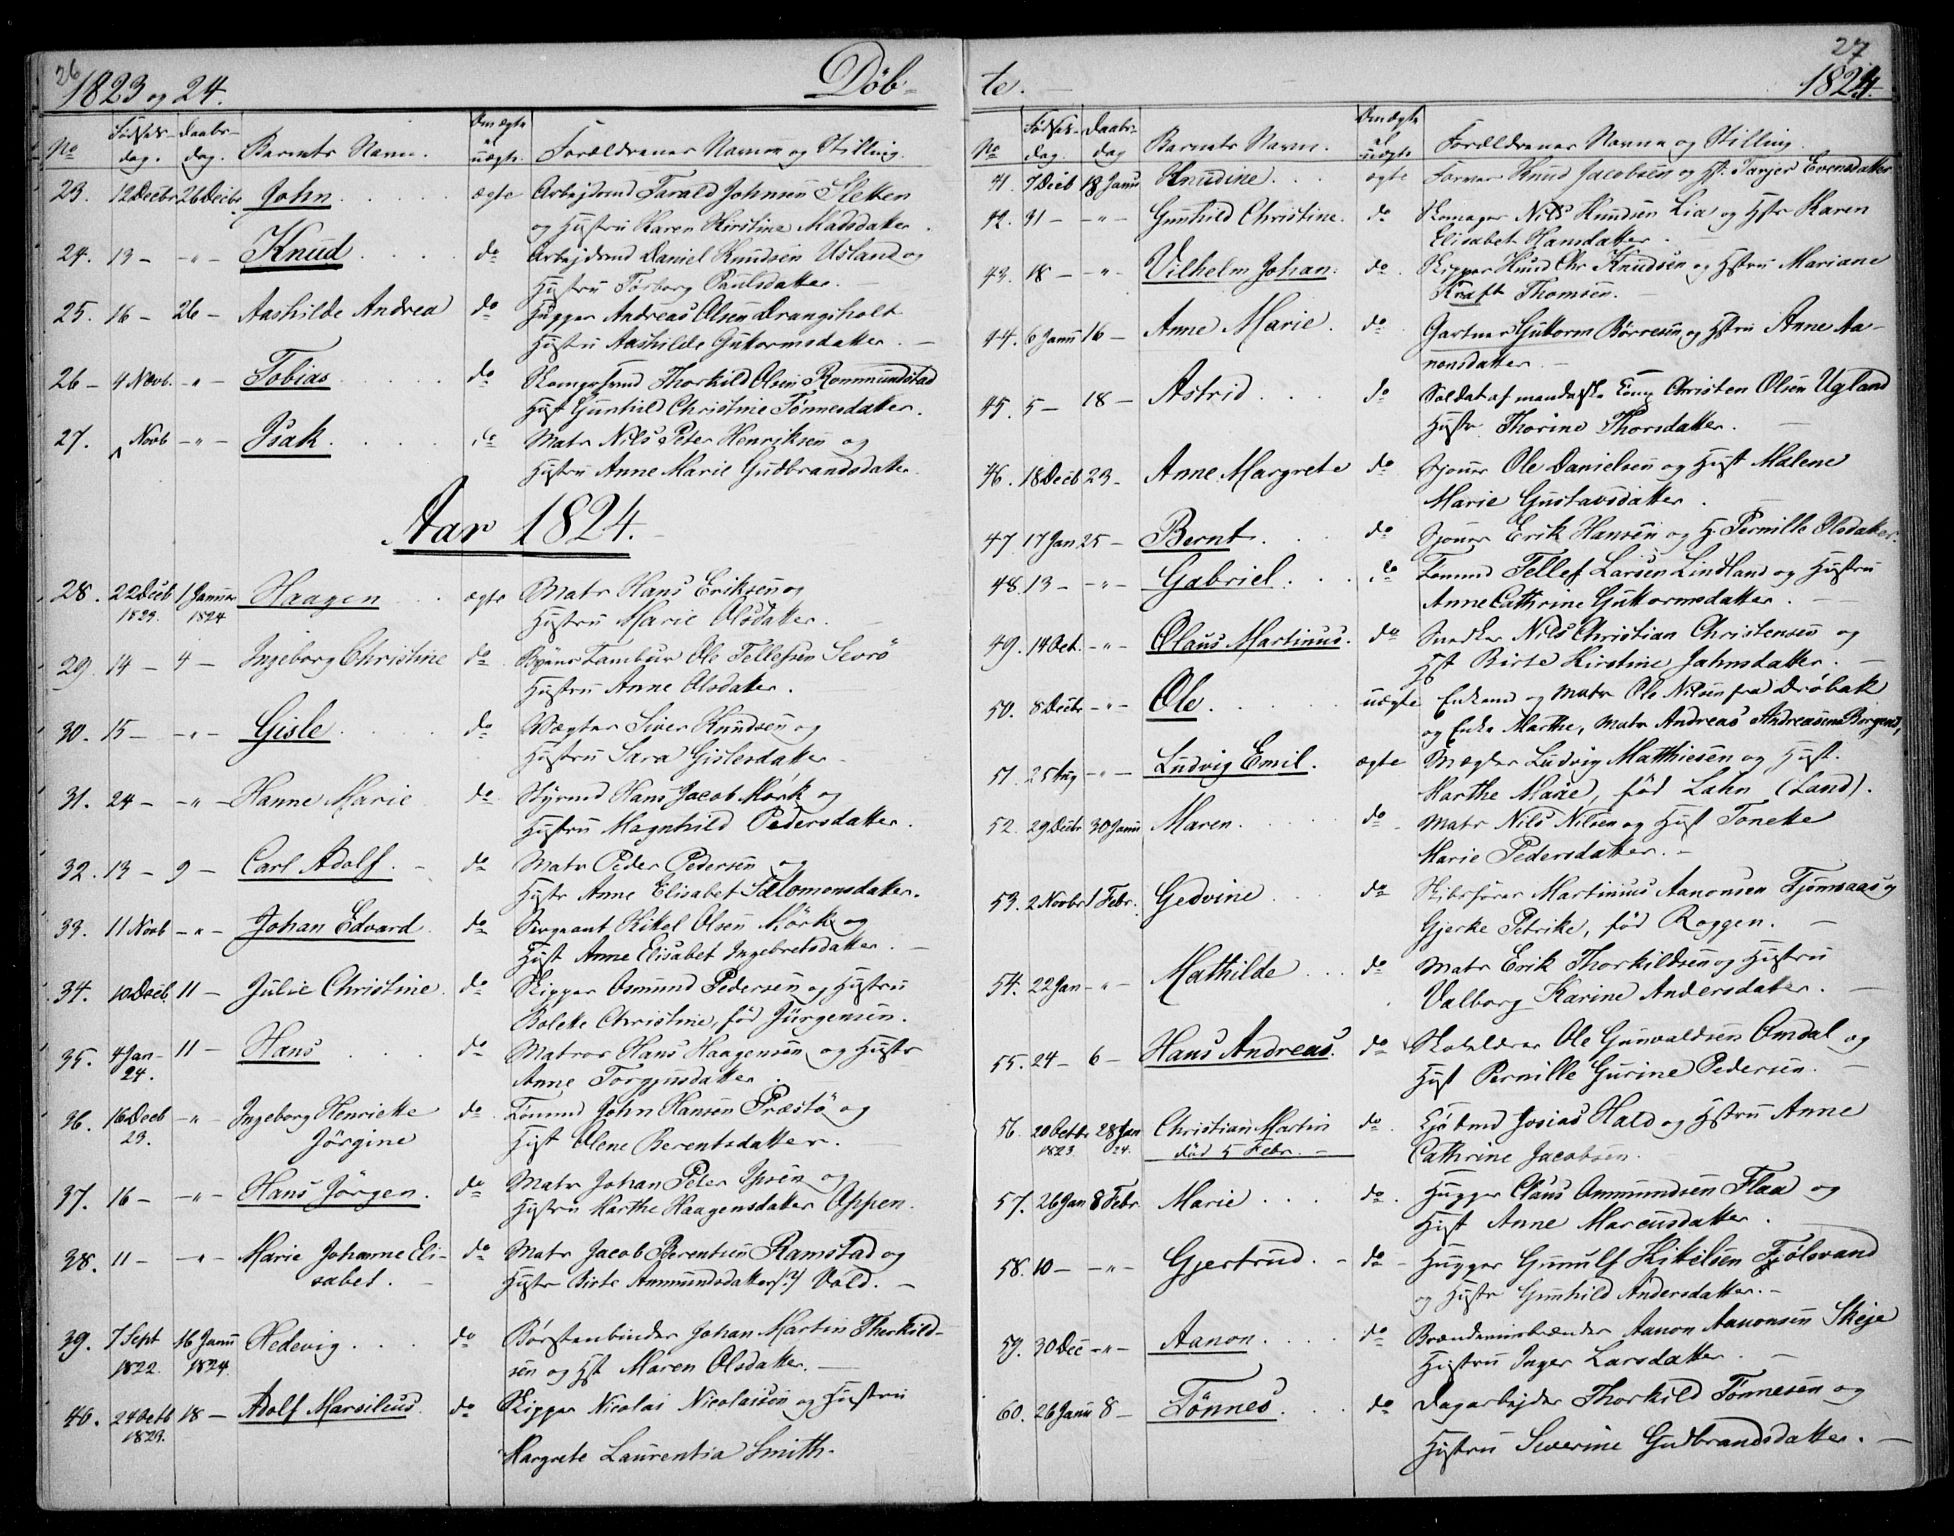 26
1823 og 24.
Döb-
No
Födsels-
dag.
Daabs-
dag.
Barnets Navn.
Om ægte
el
uægte.
Forældrenes Navne og Stilling.
23. 12 Decbr 26 Decbr. John. ægte Arbejdsmd Tarald Johnsen Sletten
og Hustru Karen Kirstine Madsdatter.
24. 13 - -"- Knud do Arbejdsmd Daniel Knudsen Usland og
Hustru Torborg Paulsdatter.
25. 16 - 26 - Aashilde Andrea do Hugger Andreas Olsen Drangsholt
Hustru Aashilde Guttormsdatter.
26 - 4 Novb. -"- Tobias do Thorkild Olsen Rommundstad
Hust Gunhild Christine Tönnesdatter.
27. Novb -"- Isak. do Matr Nils Peter Henriksen og
Hustru Anne Marie Gudbrandsdatter.
Aar 1824.
28. 22 Decb 1 Januar Haagen ægte Matr Hans Eriksen og
1823. 1824 Hustru Marie Olsdatter.
29. 14 - 4 - Ingeborg Christine do Byens Tambur Ole Tellefsen Sevrö
Hustru Anne Olsdatter.
30. 15 - -"- Gisle do Vægter Siver Knudsen og
Hustru Sara Gislesdatter
31. 24 - -"- Hanne Marie do Styrmd Hans Jacob Mörk og
Hustru Magnhild Pedersdatter.
32. 13 - 9 - Carl Adolf. do Matr Peder Pedersen og
Hustr Anne Elisabet Salomonsdatter.
33. 11 Novb -"- Johan Edvard do Sergeant Kitel Olsen Mörk og
Hust Anne Elisabet Ingebretsdatter.
34. 10 Decb. 11 - Julie Christine do Skipper Osmund Pedersen og Hustru
Bolette Christine, föd Jürgensen.
35. 4 Jan- 11 - Hans do Matros Hans Haagensen og Hustr
24. Anne Torgjusdatter
36. 16 Decb -"- Ingeborg Henriette do Tömmd John Hansen Præstö og
23. Jörgine Hust Olene Berentsdatter.
37. 16 - -"- Hans Jörgen. do Matr Johan Peter Ipsen og
Hustru Marthe Haagensdatter Oppen.
38. 11 - -"- Marie Johanne Eli- do Matr Jacob Berentsen Ramstad og
sabet. Hustr Birte Ammundsdatter (?) Vold.
39. 7 Sept 16 Janu Hedevig. do Börstenbinder Johan Martin Thorkild-
1822. 1824. sen og Hst Maren Olsdatter.
40. 24 Octb 18 - Adolf Marsilius. do Skipper Nicolai Nicolaisen og Hustru
1823. Margrete Laurentia Smith.
27
te.
1824.
No
Födsels-
dag.
Daabs-
dag
Barnets Navn.
Om ægte
el
uægte
Forældrenes Navne og Stilling.
41. 7 Decb 18 Janu Knudine. ægte Farver Knud Jacobsen og H. Tarjer Evensdatter
42. 31 - -"- Gunhild Christine. do Skomager Nils Knudsen Lia og Hstr Karen
Elisabet Hansdatter.
43. 18 - -"- Vilhelm Johan. do. Skipper Knud Chr Knudsen og Hstru Mariane
Kraft Thomsen.
44. 6 Janu 16 - Anne Marie. do. Gartner Guttorm Börresen og Hstru Anne Aa-
nonsdatter.
45. 5 - 18 - Astrid. do Soldat af mandalske Comp Christen Olsen Ugland
Hustr. Thorine Thorsdatter.
46. 18 Decb 23 - Anne Margrete do Sjöm Ole Danielsen og Hust Malene
Marie Gustavsdatter.
47. 17 Jan 25 - Bernt. do Sjöm Erik Hansen og H. Pernille Olsdatter.
48. 13 - -"- Gabriel. do Tömmd Tellef Larsen Lindland og Hustru
Anne Cathrine Guttormsdatter.
49. 14 Oct. -"- Olaus Martinus. do Snedker Nils Christian Christensen og
Hst Birte Kirstine Jahnsdatter.
50. 8 Decbr -"- Ole. uægte Enkemd og Matr Ole Nilsen fra Dröbak
og Enke Marthe, Matr Andreas Andreasens Borgend,
51. 25 Aug -"- Ludvig Emil. ægte Mægler Ludvig Matthiesen og Hust.
Marthe Marie, föd Lahn (Land).
52. 29 Decbr 30 Janu Maren. do Matr Nils Nilsen og Hust Toneke
Marie Pedersdatter.
53. 2 Novbr 1 Febr. Gedvine do Skibsförer Martinius Aanonsen Tjönnaas og
Gjerke Petrike, föd Roggen.
54. 22 Jan -"- Mathilde do Matr Erik Thorkildsen og Hustru
Valborg Karine Andersdatter.
55. 24 - 6 - Hans Andreas. do Skolelærer Ole Gunvaldsen Omdal og
Hust Pernille Gurine Pedersen.
56. 20 Octbr 28 Jan Christian Martin do. Kjöbmd Josias Hald og Hstru Anne
1823. 24. död 5 Febr. Cathrine Jacobsen.
57. 26 Jan 8 Febr Marie do. Hugger Claus Ommundsen Flaa og
Hust Anne Marcusdatter.
58. 10 - -"- Gjertrud. do Hugger Gunulf Kitelsen Fjölsvand
og Hustr Gunhild Andersdatter.
59. 30 Dec -"- Aanon. do Brændevinsbrænder Aanon Aanonsen Skeje
Hustru Inger Larsdatter
60. 26 Janu 8 - Tönnes. do Dagarbejder Thorkild Tönnesen og
Hustru Severine Gudbrandsdatter.